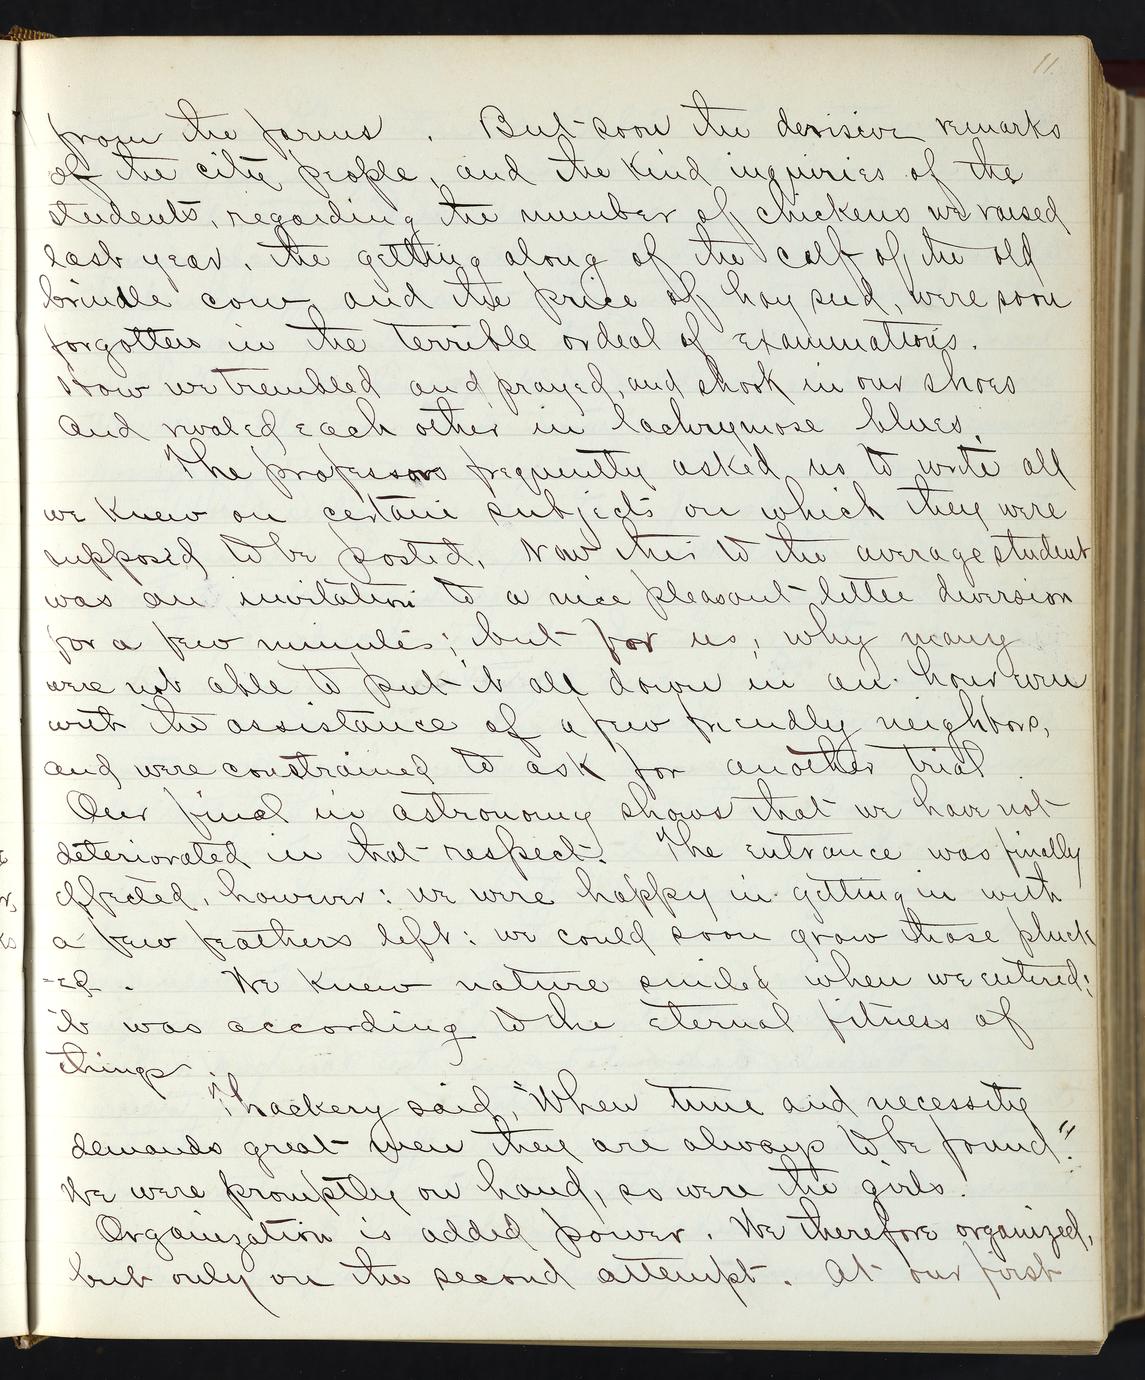 11.
from the farms . But soon the derisive remarks
of the city people, and the kind inquiries of the
students, regarding the number of chickens we raised
last year, the getting along of the calf of the old
brindle cow, and the price of hay seed, were soon
forgotten in the terrible ordeal of examinations.
How we trembled and prayed, and shook in our shoes
and rivaled each other in lachrymose blues.
The professors frequently asked us to write all
we knew on certain subjects on which they were
supposed to be posted. Now this to the average student
was an invitation to a nice pleasant little diversion
for a few minutes; but for us, why many
were not able to put it all down in an hour even
with the assistance of a few friendly neighbors,
and were constrained to ask for another trial .
Our final in astronomy shows that we have not
deteriorated in that respect. The entrance was finally
effected, however: we were happy in getting in with
a few feathers left: we could soon grow those pluck
-ed . We knew nature smiled when we entered;
it was according to the eternal fitness of
things
Thackery said, "When time and necessity
demands great men they are always to be found."
We were promptly on hand, so were the girls.
Organization is added power. We therefore organized,
but only on the second attempt. At our first